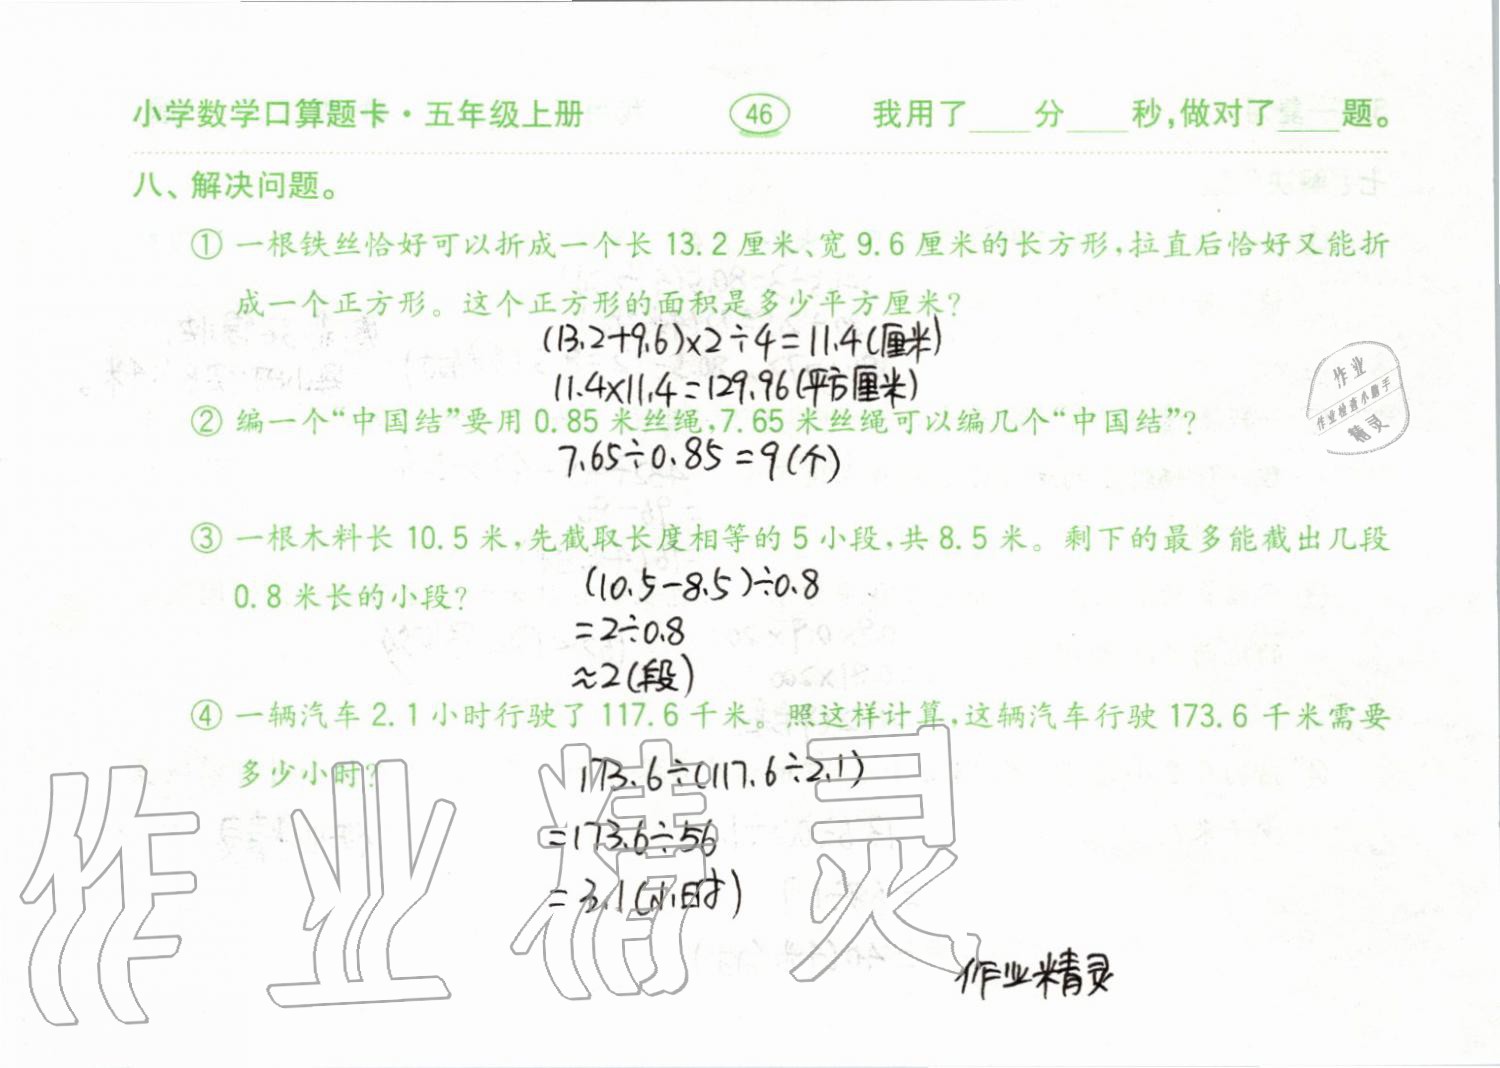 小学数学口算题卡·五年级上册 46 我用了____分____秒,做对了____题。
八、解决问题。
① 一根铁丝恰好可以折成一个长 13.2 厘米、宽 9.6 厘米的长方形,拉直后恰好又能折
成一个正方形。这个正方形的面积是多少平方厘米?
(13.2+9.6)×2÷4=11.4(厘米)
11.4×11.4=129.96(平方厘米)
② 编一个“中国结”要用 0.85 米丝绳,7.65 米丝绳可以编几个“中国结”?
7.65÷0.85=9(个)
③ 一根木料长 10.5 米,先截取长度相等的 5 小段,共 8.5 米。剩下的最多能截出几段
0.8 米长的小段?
(10.5-8.5)÷0.8
=2÷0.8
≈2(段)
④ 一辆汽车 2.1 小时行驶了 117.6 千米。照这样计算,这辆汽车行驶 173.6 千米需要
多少小时?
173.6÷(117.6÷2.1)
=173.6÷56
=3.1(小时)
作业精灵
作业
作业检查小助手
精灵
作业精灵